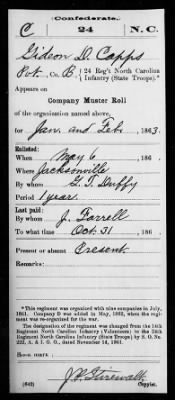 Confederate.
C 24 N. C.
Gideon D. Capps
Pvt., Co. B, 24 Reg't North Carolina
Infantry (State Troops).*
Appears on
Company Muster Roll
of the organization named above,
for Jan. and Feb., 1863.
Enlisted:
When May 6, 186 .
Where Jacksonville
By whom G. T. Duffy
Period 1 year.
Last paid:
By whom J. Farrell
To what time Oct 31, 186 .
Present or absent Present.
Remarks:
*This regiment was organized with nine companies in July,
1861. Company D was added in May, 1862, when the regi-
ment was re-organized for the war.
The designation of the regiment was changed from the 14th
Regiment North Carolina Infantry (Volunteers) to the 24th
Regiment North Carolina Infantry (State Troops) by S. O. No.
222, A. & I. G. O., dated November 14, 1861.
Book mark:
(642)
Copyist.